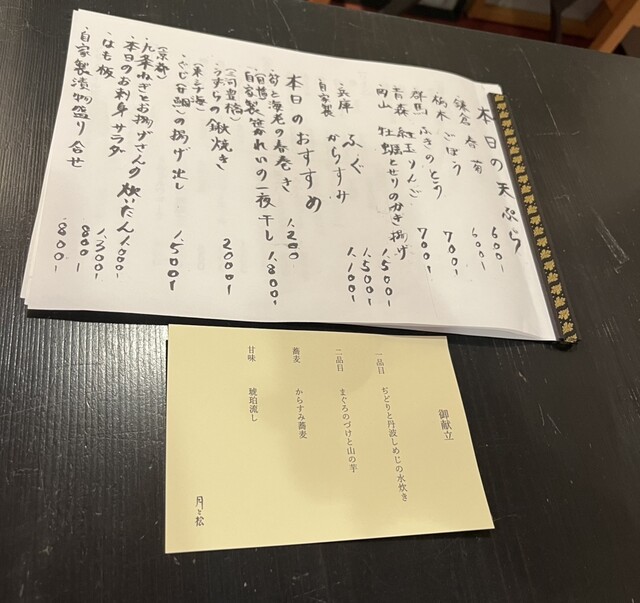 本日の天ぷら
鎌倉 春菊 600-
栃木 ごぼう 600-
群馬 ふきのとう 700-
青森 紅玉りんご 700-
岡山 牡蠣とせりのかき揚げ 1.500-
兵庫 ふぐ 1.500-
自家製 からすみ 1.100-
本日のおすすめ
・筍と海老の春巻き 1.200
自家製 笹かれいの一夜干し 1.800-
・うずらの鍬焼き 2000-
・ぐじ(甘鯛)の揚げ出し 1.500-
(京都)
・九条ねぎとお揚げさんの炊いたん 1.000-
・本日のお刺身サラダ 1.300-
・はも板 800-
・自家製漬物盛り合せ 800-
御献立
一品目 ぢどりと丹波しめじの水炊き
二品目 まぐろのづけと山の芋
蕎麦 からすみ蕎麦
甘味 琥珀流し
月と松